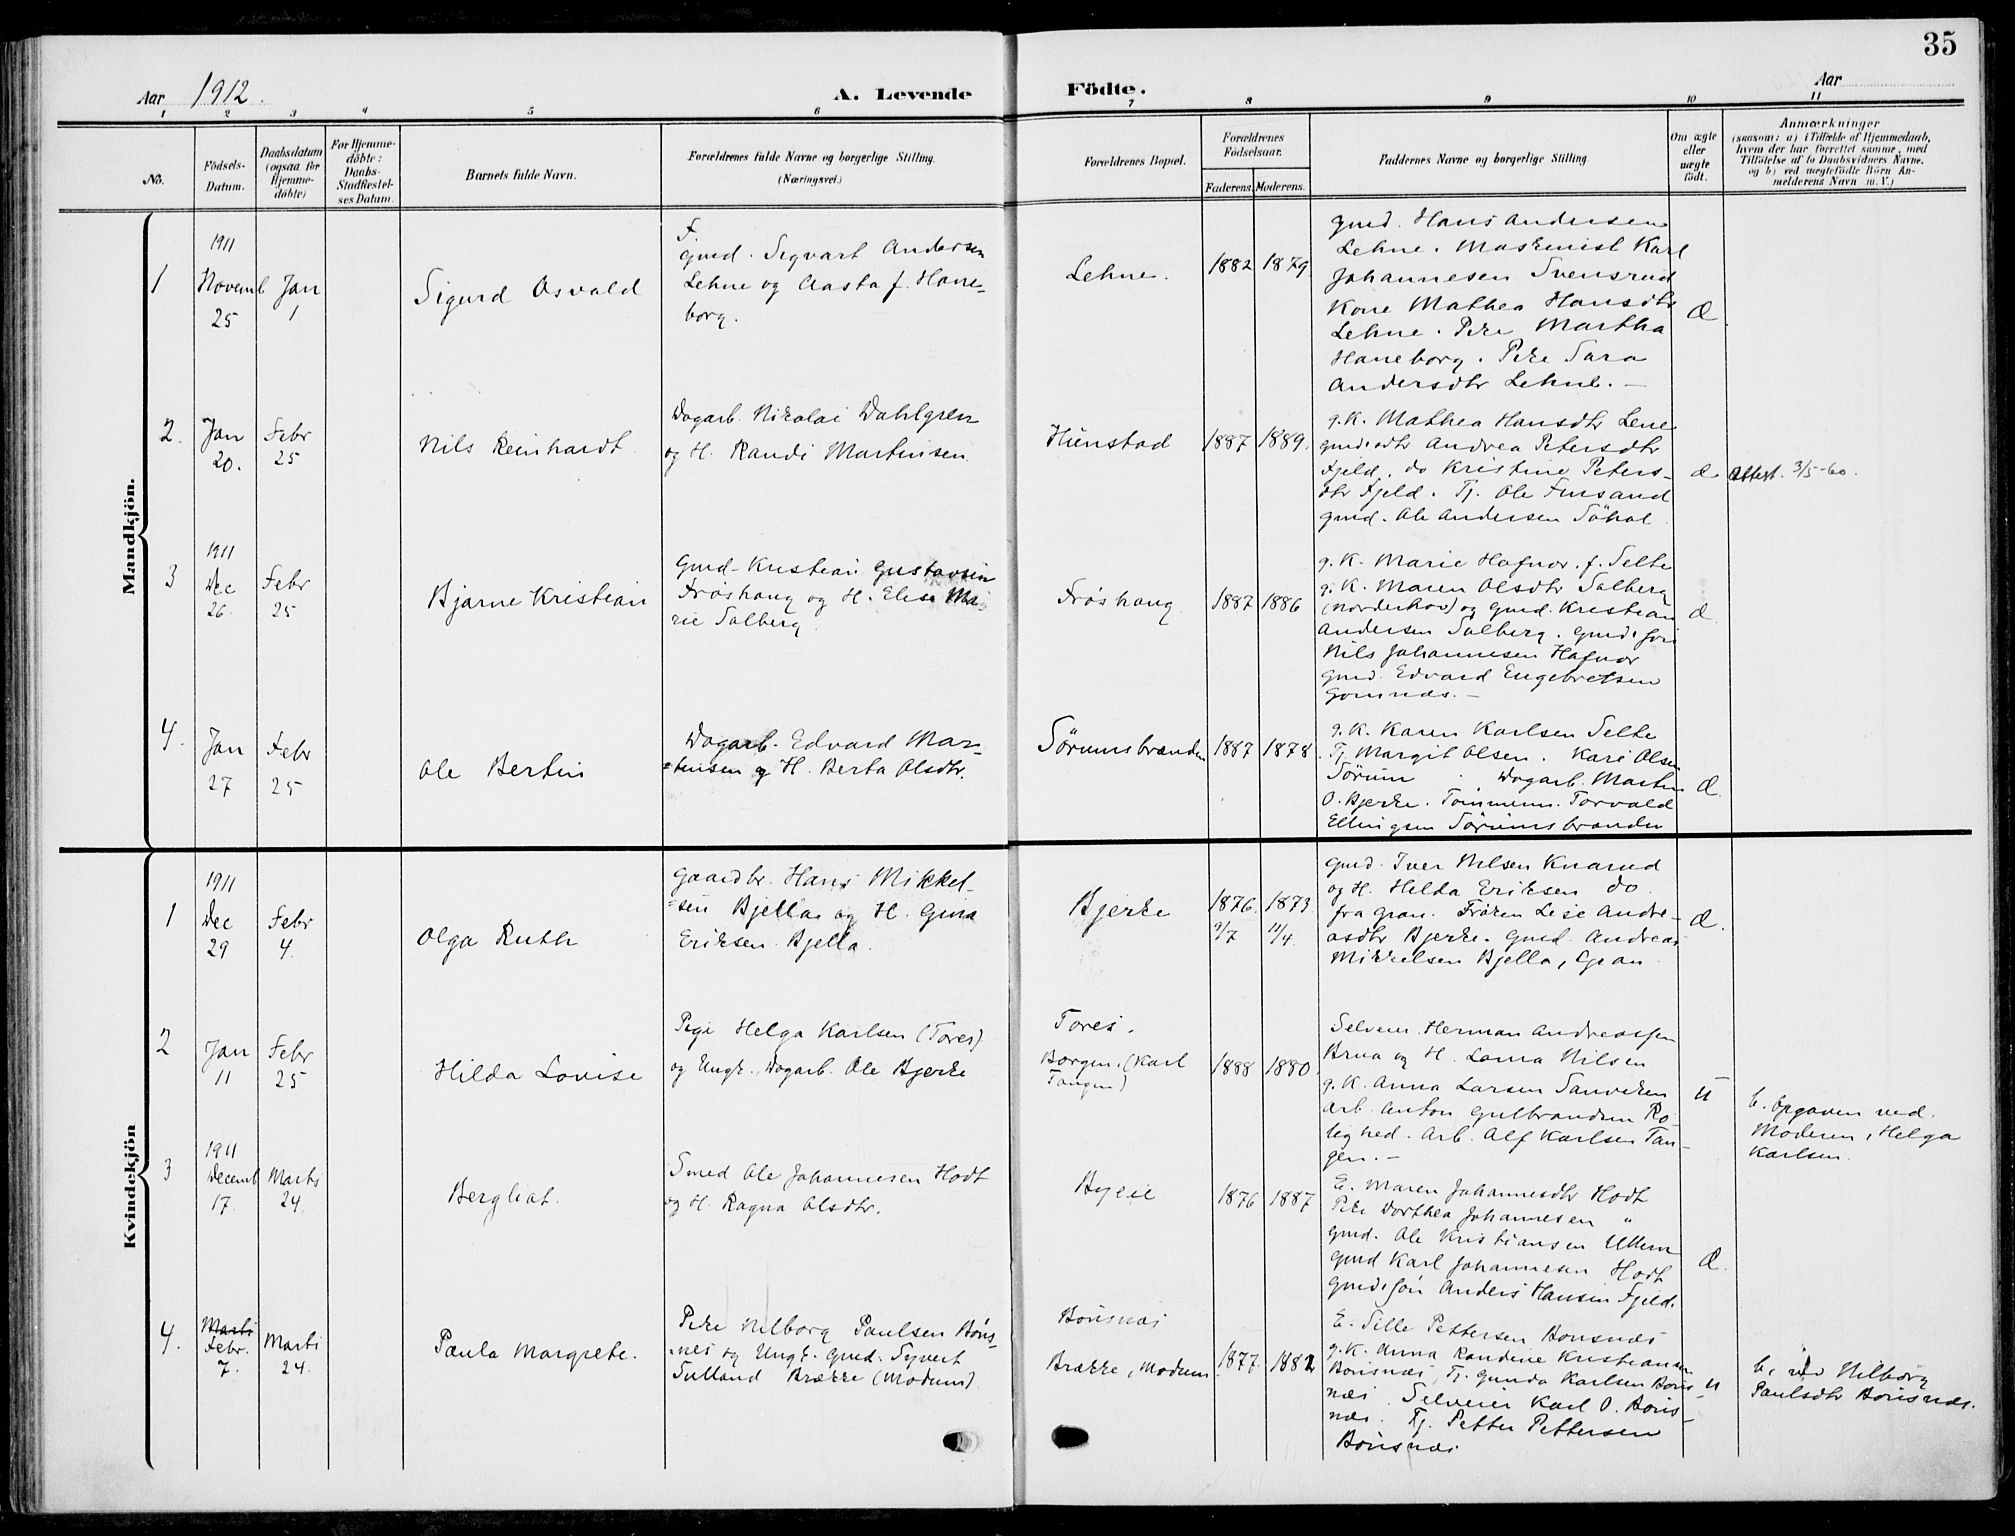 35
Aar 1912.
A. Levende
Födte.
Aar
1 2 3 4 5 6 7 8 9 10 11
No.
Födsels-
Datum.
Daabsdatum
(ogsaa for
Hjemme-
döbte)
For Hjemme-
döbte:
Daabs-
Stadfæstel-
ses Datum.
Barnets fulde Navn.
Forældrenes fulde Navne og borgerlige Stilling.
(Næringsvei.)
Forældrenes Bopæl.
Forældrenes
Födselsaar.
Faderens. Moderens.
Faddernes Navne og borgerlige Stilling.
Om ægte
eller
uægte
födt.
Anmærkninger
(saasom: a) i Tilfælde af Hjemmedaab,
hvem der har forrettet samme, med
Tilföielse af to Daabsvidners Navne.
og b) ved uægtefödte Börn An-
melderens Navn m. V.)
Mandkjön.
1
1911
Novemb
25
Jan
1
Sigurd Osvald
F
Gmd. Sigvart Andersen
Lehne og Aasta f. Hane-
borg.
Lehne.
1882 1879
Gmd. Hans Andersen
Lehne. Maskinist Karl
Johannesen Svensrud
Kone Mathea Hansdtr
Lehne. Pike Martha
Haneborg. Pike Sara
Andersdtr Lehne. —
Æ.
2.
Jan
20.
Febr
25
Nils Reinhardt.
Dagarb. Nikolai Dahlgren
og H. Randi Martinsen
Hunstad
1887 1889.
g. K. Mathea Hansdtr Lene
gmdsdtr Andrea Petersdtr
Fjeld, do Kristine Peters-
dtr Fjeld. Tj. Ole Fursand
gmd. Ole Andersen Söhol
Æ
Attest. 3/5-60.
3
1911
Dec
26.
Febr
25
Bjarne Kristian
Gmd- Kristian Gustavsen
Fröshaug og H. Elise Ma
rie Solberg.
Fröshaug
1887 1886
g. K. Marie Hafnor. f. Selte
g. K. Maren Olsdtr Solberg
(Norderhov) og Gmd. Kristian
Andersen Solberg. Gmds sön
Nils Johannesen Hafnor
Gmd. Edvard Engebretsen
Gomnæs. —
Æ.
4.
Jan
27
Febr
25
Ole Bertin
Dagarb. Edvard Mar-
tinsen og H. Berta Olsdtr.
Sörumsbranden
1887 1878
g. K. Karen Karlsen Selte
Tj. Margit Olsen. Kari Olsen
Sörum. Dagarb. Martin
O. Bjerke. Tömmerm. Torvald
Ellingsen Sörumsbranden
Æ.
Kvindekjön
1
1911
Dec
29
Febr
4.
Olga Ruth
Gaardbr. Hans Mikkel-
sen Bjella og H. Gina
Eriksen Bjella.
Bjerke
1876. 1873.
9/7 11/4.
Gmd. Iver Nilsen Knarud
og H. Hilda Eriksen do.
fra Gran. Fröken Lise Andre-
asdtr Bjerke. Gmd. Andreas
Mikkelsen Bjella, Gran
Æ.
2
Jan
11
Febr
25
Hilda Lovise
Pige Helga Karlsen (Tores)
og Ungk. Dagarb. Ole Bjerke
Tores.
Borgen. (Karl
Tangen)
1888 1880.
Selveier Herman Andreassen
Brua og H. Laura Nilsen
g. K. Anna Larsen Sanviken
Arb. Anton Gulbrandsen Ro-
lighed. Arb. Alf Karlsen Tan-
gen. —
U
b. Opgaven ved.
Moderen, Helga
Karlsen.
3
1911
Decemb
17.
Marts
24.
Bergliot.
Smed Ole Johannesen Hodt
og H. Ragna Olsdtr.
1876 1887
E. Maren Johannesdtr Hodt
Pike Dorthea Johannesen "
Gmd. Ole Kristiansen Ullern
Gmd Karl Johannesen Hodt
Gmds sön Anders Hansen Fjeld.
Æ.
4.
Marts
Febr.
7.
Marts
24.
Paula Margrete.
Pike Nilborg Paulsen Böns-
næs og Ungk. Gmd. Syvert
Sulland Brække (Modum).
Bönsnæs
Brække, Modum.
1877 1882
E. Sille Pettersen Bönsnæs
g. K. Anna Randine Kristiansen
Bönsnæs, Tj. Gunda Karlsen Böns-
næs. Selveier Karl O. Böns-
næs. Tj. Petter Pettersen
Bönsnæs
U
b, ved Nilborg
Paulsdtr Bönsnæs.